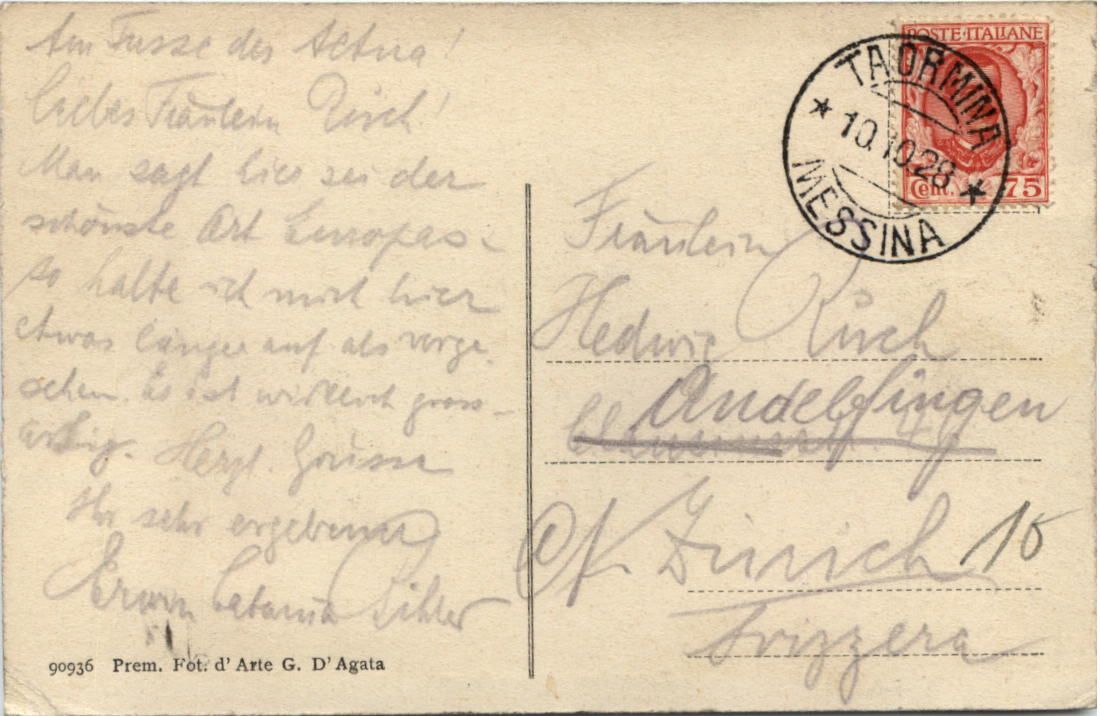 Am Fusse des Aetna!
Liebes Fräulein Rüsch!
Man sagt hier sei der
schönste Ort Europas -
so halte ich mich hier
etwas länger auf als vorge-
sehen. Es ist wirklich gross-
artig. Herzl. Grüsse
Ihr sehr ergebener
Erwin
90936 Prem. Fot. d'Arte G. D'Agata
POSTE·ITALIANE
Cent. 75
TAORMINA
10.10.28
MESSINA
Fräulein
Hedwig Rüsch
Andelfingen
Zürich 10
Svizzera